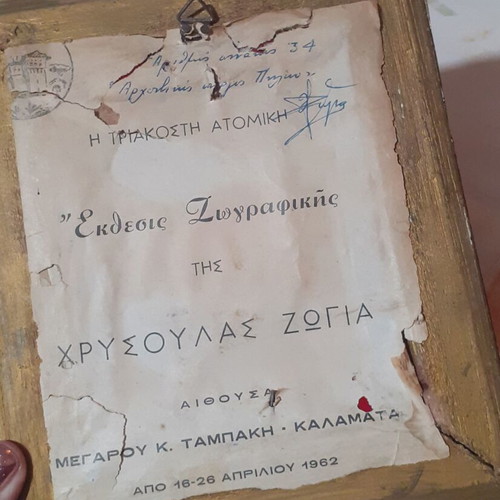 Ἀριθμὸς πίνακος 34
"Ἀρχοντικὸ Πηλίου"
Η ΤΡΙΑΚΟΣΤΗ ΑΤΟΜΙΚΗ
Ἔκθεσις Ζωγραφικῆς
ΤΗΣ
ΧΡΥΣΟΥΛΑΣ ΖΩΓΙΑ
ΑΙΘΟΥΣΑ
ΜΕΓΑΡΟΥ Κ. ΤΑΜΠΑΚΗ · ΚΑΛΑΜΑΤΑ
ΑΠΟ 16-26 ΑΠΡΙΛΙΟΥ 1962